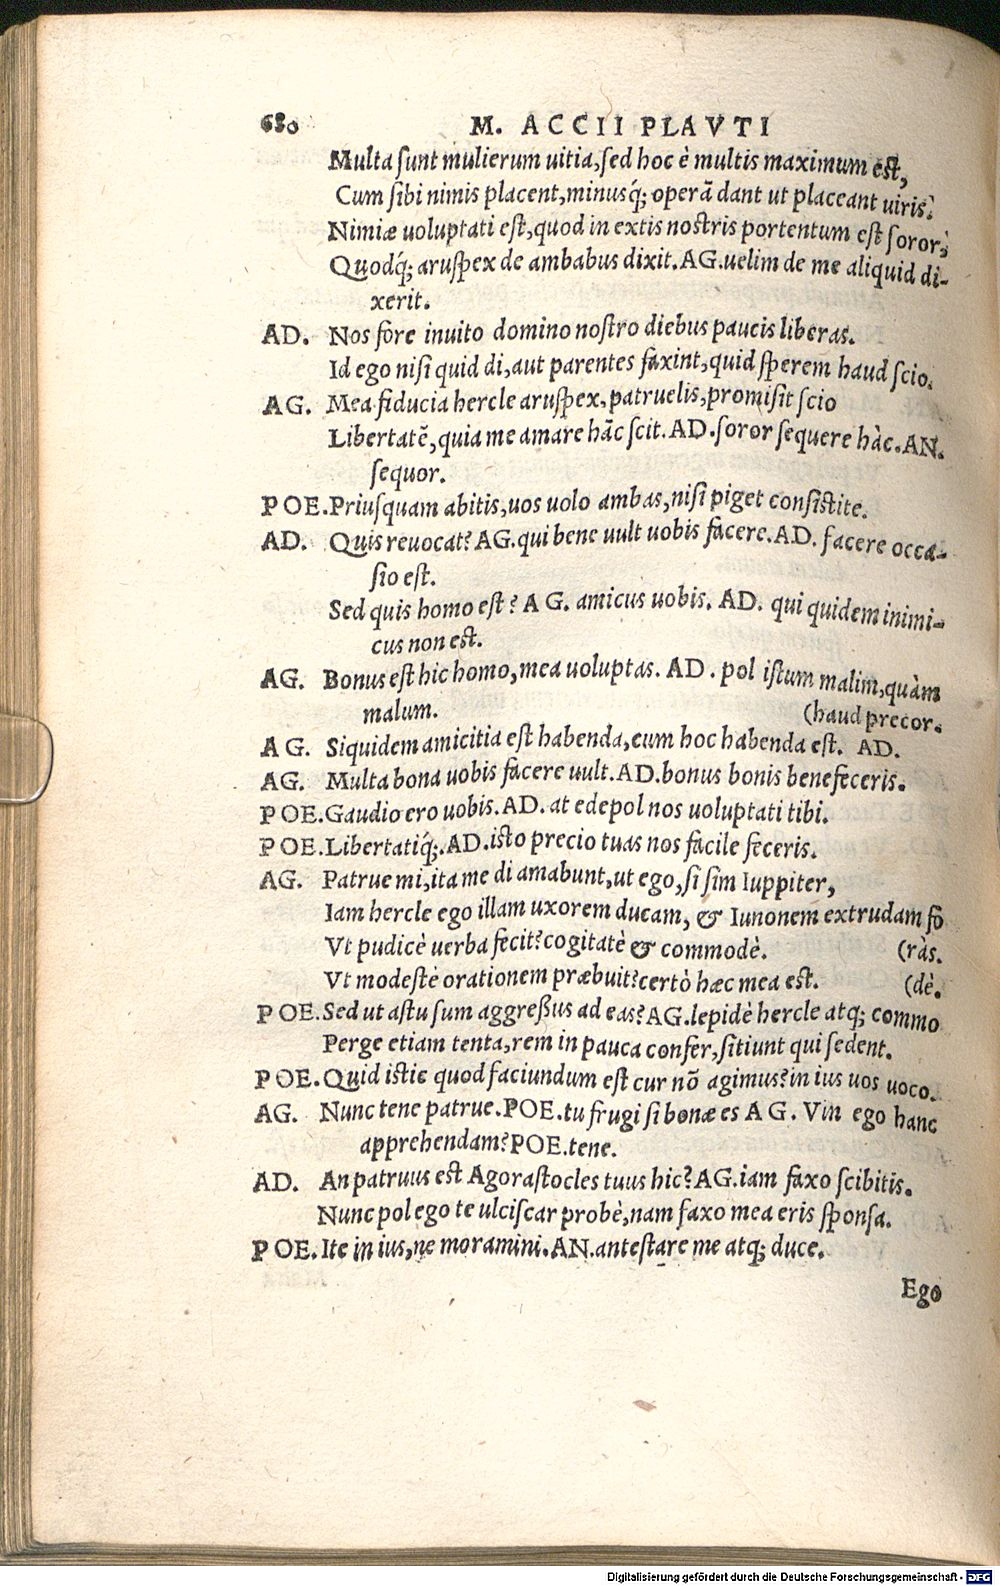 680 M. ACCII PLAVTI
Multa sunt mulierum uitia, sed hoc è multis maximum est,
Cum sibi nimis placent, minusq́; operā dant ut placeant uiris:
Nimiæ uoluptati est, quod in extis nostris portentum est soror;
Quodq́; aruspex de ambabus dixit. AG. uelim de me aliquid di-
xerit.
AD. Nos fore inuito domino nostro diebus paucis liberas.
Id ego nisi quid di, aut parentes faxint, quid sperem haud scio.
AG. Mea fiducia hercle aruspex, patruelis, promisit scio
Libertatē, quia me amare hāc scit. AD. soror sequere hàc. AN.
sequor.
POE. Priusquam abitis, uos uolo ambas, nisi piget consistite.
AD. Quis reuocat? AG. qui bene uult uobis facere. AD. facere occa-
sio est.
Sed quis homo est? AG. amicus uobis. AD. qui quidem inimi-
cus non est.
AG. Bonus est hic homo, mea uoluptas. AD. pol istum malim, quàm
malum. (haud precor.
AG. Siquidem amicitia est habenda, cum hoc habenda est. AD.
AG. Multa bona uobis facere uult. AD. bonus bonis benefeceris.
POE. Gaudio ero uobis. AD. at edepol nos uoluptati tibi.
POE. Libertatiq́;. AD. isto precio tuas nos facile feceris.
AG. Patrue mi, ita me di amabunt, ut ego, si sim Iuppiter,
Iam hercle ego illam uxorem ducam, & Iunonem extrudam fo
Vt pudicè uerba fecit? cogitatè & commodè. (ràs.
Vt modestè orationem præbuit? certò hæc mea est. (dè.
POE. Sed ut astu sum aggreßus ad eas? AG. lepidè hercle atq; commo
Perge etiam tenta, rem in pauca confer, sitiunt qui sedent.
POE. Quid istic quod faciundum est cur nō agimus? in ius uos uoco.
AG. Nunc tene patrue. POE. tu frugi si bonæ es AG. Vin ego hanc
apprehendam? POE. tene.
AD. An patruus est Agorastocles tuus hic? AG. iam faxo scibitis.
Nunc pol ego te ulciscar probè, nam faxo mea eris sponsa.
POE. Ite in ius, ne moramini. AN. antestare me atq; duce.
Ego
Digitalisierung gefördert durch die Deutsche Forschungsgemeinschaft - DFG